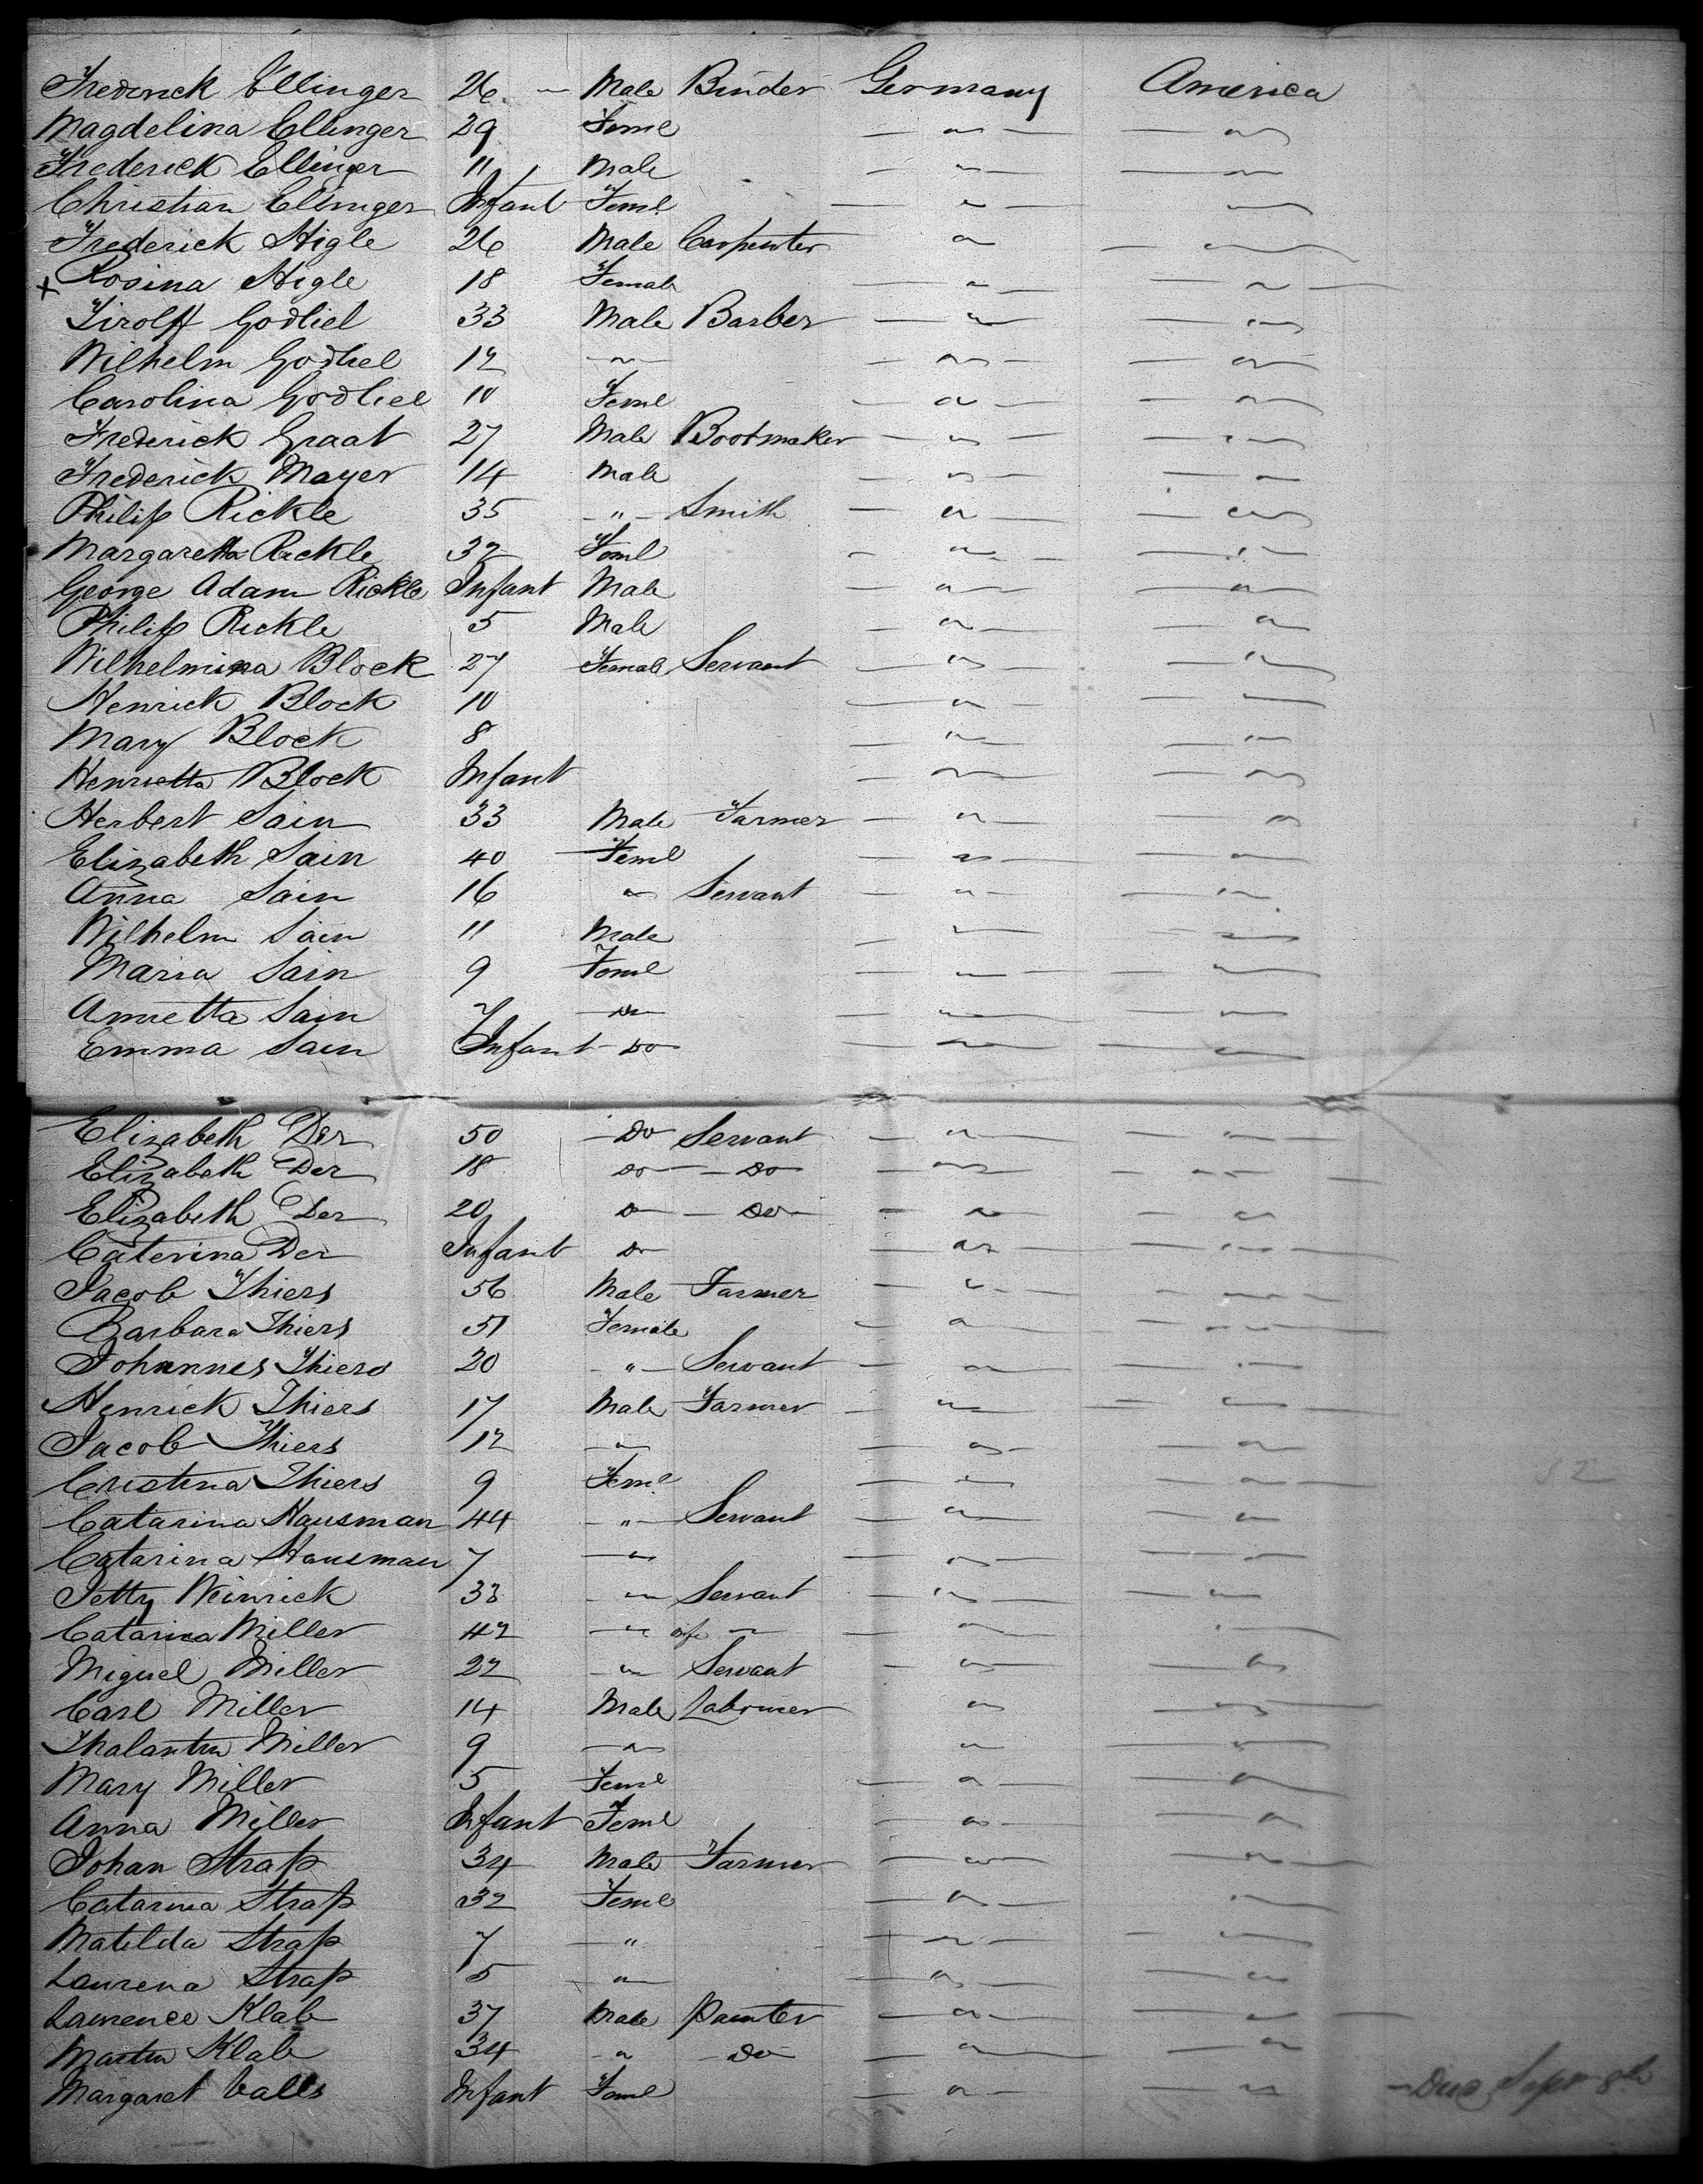 Frederick Ellinger 26 — Male Binder Germany America
Magdelina Ellinger 29 Feml — " — — " —
Frederick Ellinger 11 Male — " — — " —
Christian Ellinger Infant Feml — " — — " —
Frederick Higle 26 Male Carpenter " — " —
x Rosina Higle 18 Female — " — — " —
Godliel 33 Male Barber — " — — " —
Wilhelm Godliel 12 — " — — " — — " —
Carolina Godliel 10 Feml — " — — " —
Frederick Graat 27 Male Bootmaker — " — — " —
Frederick Mayer 14 Male — " — — " —
Philip Rickle 35 — " — Smith — " — — " —
Margaretta Rickle 32 Feml — " — — " —
George Adam Rickle Infant Male — " — — " —
Philip Rickle 5 Male — " — — " —
Wilhelmina Block 27 Female Servant — " — — " —
Henrick Block 10 — " — — " —
Mary Block 8 — " — — " —
Henrietta Block Infant — " — — " —
Herbert Sain 33 Male Farmer — " — — " —
Elizabeth Sain 40 Feml — " — — " —
Anna Sain 16 " Servant — " — — " —
Wilhelm Sain 11 Male — " — — " —
Maria Sain 9 Feml — " — — " —
Annetta Sain 7 — Do — " — — " —
Emma Sain Infant — Do — " — — " —
Elizabeth Der 50 — Do Servant — " — — " —
Elizabeth Der 18 Do — Do — " — — " —
Elizabeth Der 20 Do — Do — — " — — " —
Caterina Der Infant Do — " — — " —
Jacob Thiers 56 Male Farmer — " — — " —
Barbara Thiers 51 Female — " — — " —
Johannes Thiers 20 — " — Servant — " — — " —
Henrick Thiers 17 Male Farmer — " — — " —
Jacob Thiers 12 — " — — " — — " —
Cristina Thiers 9 Feml — " — — " —
Catarina Hausman 44 — " — Servant — " — — " —
Catarina Hausman 7 — " — — " — — " —
Jetty Weinrick 33 — " — Servant — " — — " —
Catarina Miller 42 — " wife — — " — — " —
Miguel Miller 22 — " Servant — " — — " —
Carl Miller 14 Male Labourer " — " —
Thalantin Miller 9 — " — " — " —
Mary Miller 5 Feml — " — — " —
Anna Miller Infant Feml — " — — " —
Johan Strap 34 Male Farmer — " — — " —
Catarina Strap 32 Feml — " — — " —
Matilda Strap 7 — " — " — — " —
Laurena Strap 5 — " — — " — — " —
Lawrence Klab 37 Male Painter — " — — " —
Martin Klab 34 — " — Do — — " — — " —
Margaret Valls Infant Feml — " — — " — — Due Sepr 8th